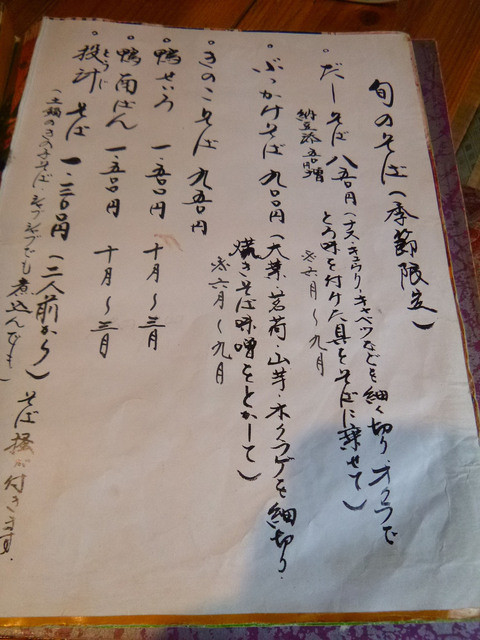 旬のそば(季節限定)
。だしそば 八五〇円(ナス・キュウリ・キャベツなどを細く切り、オクラで
とろ味を付けた具をそばに乗せて)
納豆添 五〇円増
六月〜九月
。ぶっかけそば 九〇〇円(大葉・茗荷・山芋・木クラゲを細切り、
焼きそば味噌をとかして)
六月〜九月
。きのこそば 九五〇円
。鴨せいろ 一、五〇〇円 十月〜三月
。鴨南ばん 一、五〇〇円 十月〜三月
。投汁そば 一、二〇〇円(二人前から)そば掻が付きます。
とうじ
(土鍋のきのこそば
煮込んでも)